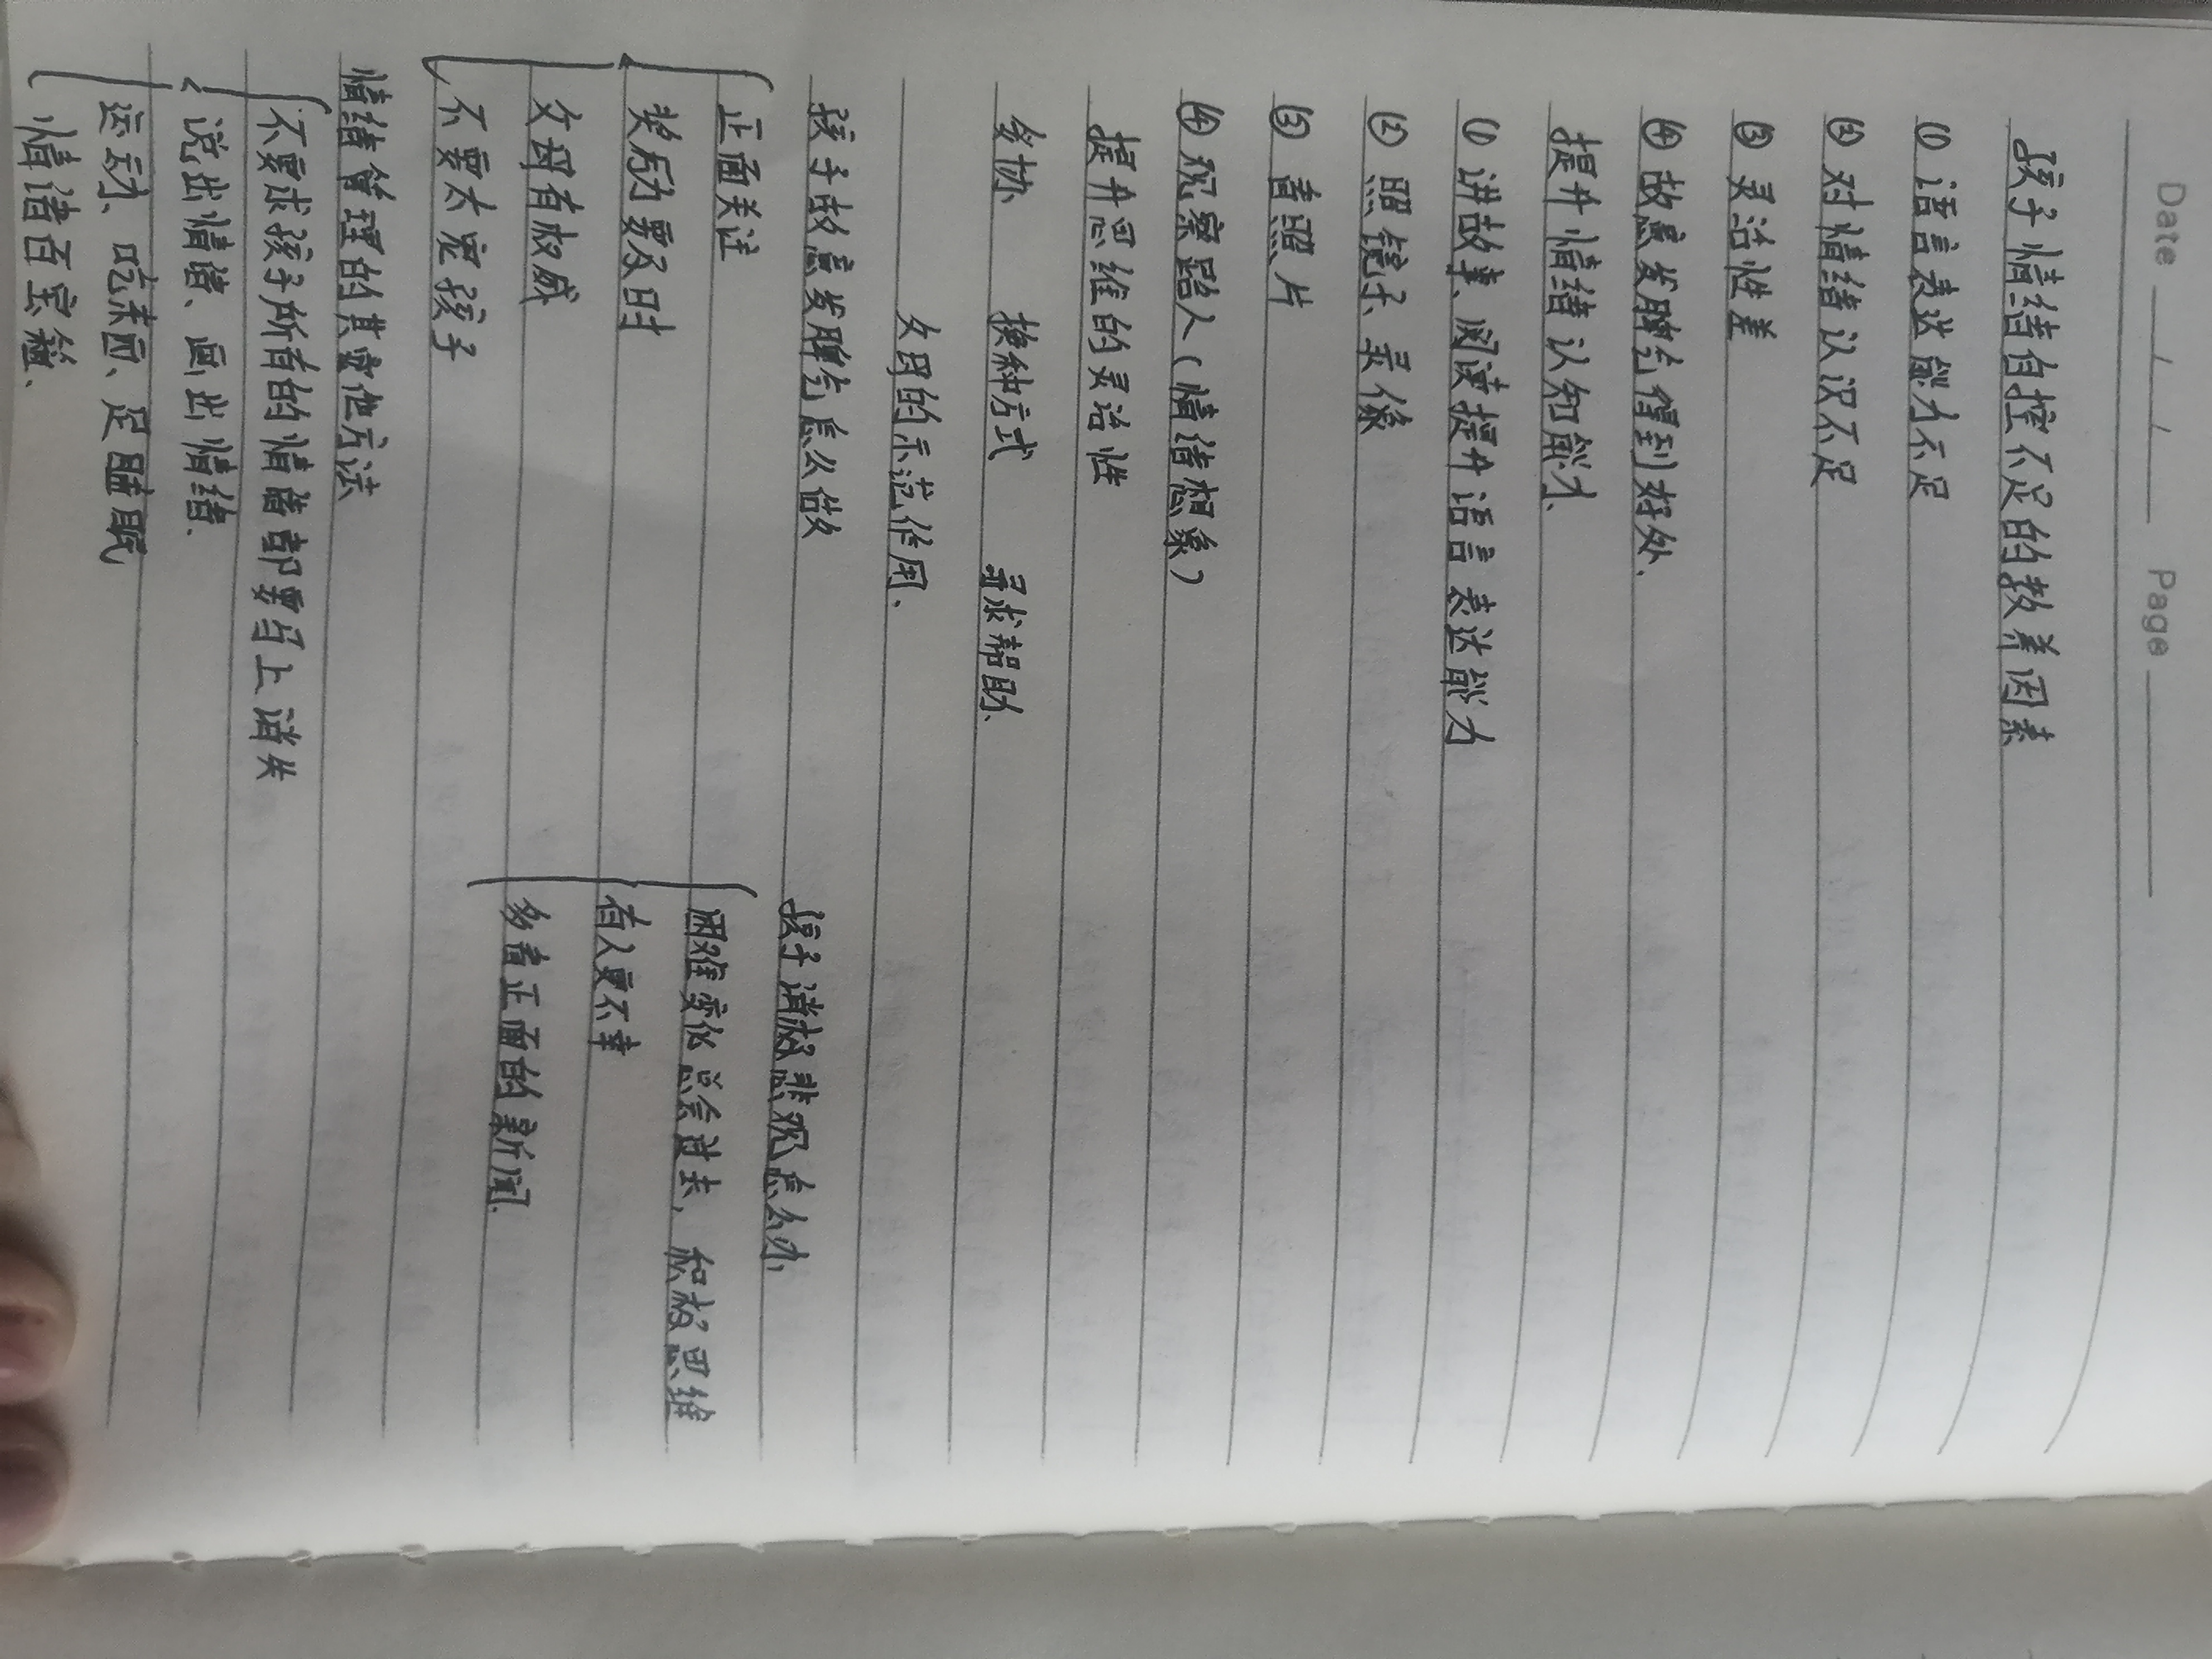 Date / / Page
孩子情绪自控不足的教养因素
① 语言表达能力不足
② 对情绪认识不足
③ 灵活性差
④ 故意发脾气得到好处、
提升情绪认知能力、
① 讲故事、阅读提升语言表达能力
② 照镜子、录像
③ 看照片
④ 观察路人(情绪想象)
提升思维的灵活性
妥协 换种方式 寻求帮助、
父母的示范作用、
孩子故意发脾气怎么做 孩子消极悲观怎么办,
正面关注 困难变化总会过去,积极思维
奖励要及时 有人更不幸
父母有权威 多看正面的新闻.
不要太宠孩子
情绪管理的其它他方法
不要求孩子所有的情绪都要马上消失
说出情绪、画出情绪.
运动、吃东西、足睡眠
情绪百宝箱、